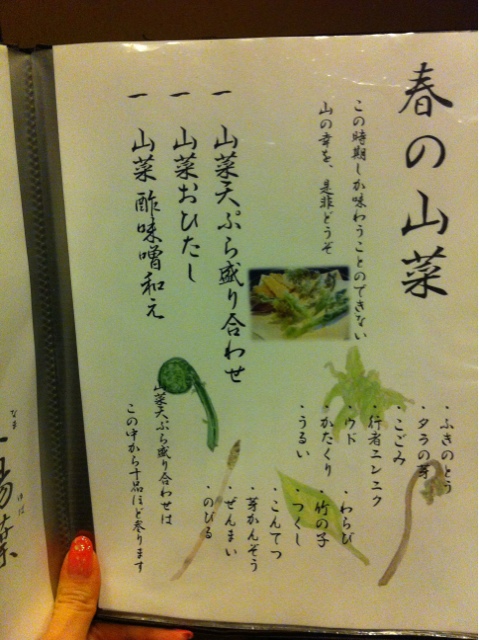 春の山菜
この時期しか味わうことのできない
山の幸を、是非どうぞ
一 山菜天ぷら盛り合わせ
一 山菜おひたし
一 山菜 酢味噌和え
・ふきのとう
・タラの芽
・こごみ
・行者ニンニク
・ウド
・かたくり
・うるい
・わらび
・竹の子
・つくし
・こんてつ
・芽かんぞう
・ぜんまい
・のびる
山菜天ぷら盛り合わせは
この中から十品ほど参ります